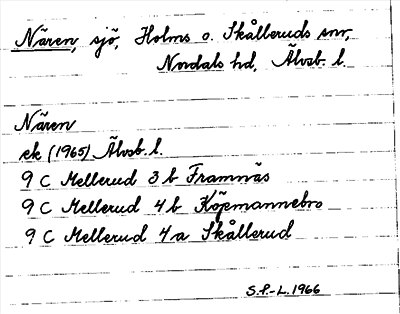 Nären, sjö, Holms o. Skålleruds snr,
Nordals hd, Älvsb. l.
Nären
ek (1965) Älvsb. l.
9 C Mellerud 3 b Framnäs
9 C Mellerud 4 b Köpmannebro
9 C Mellerud 4 a Skållerud
S.P.-L. 1966